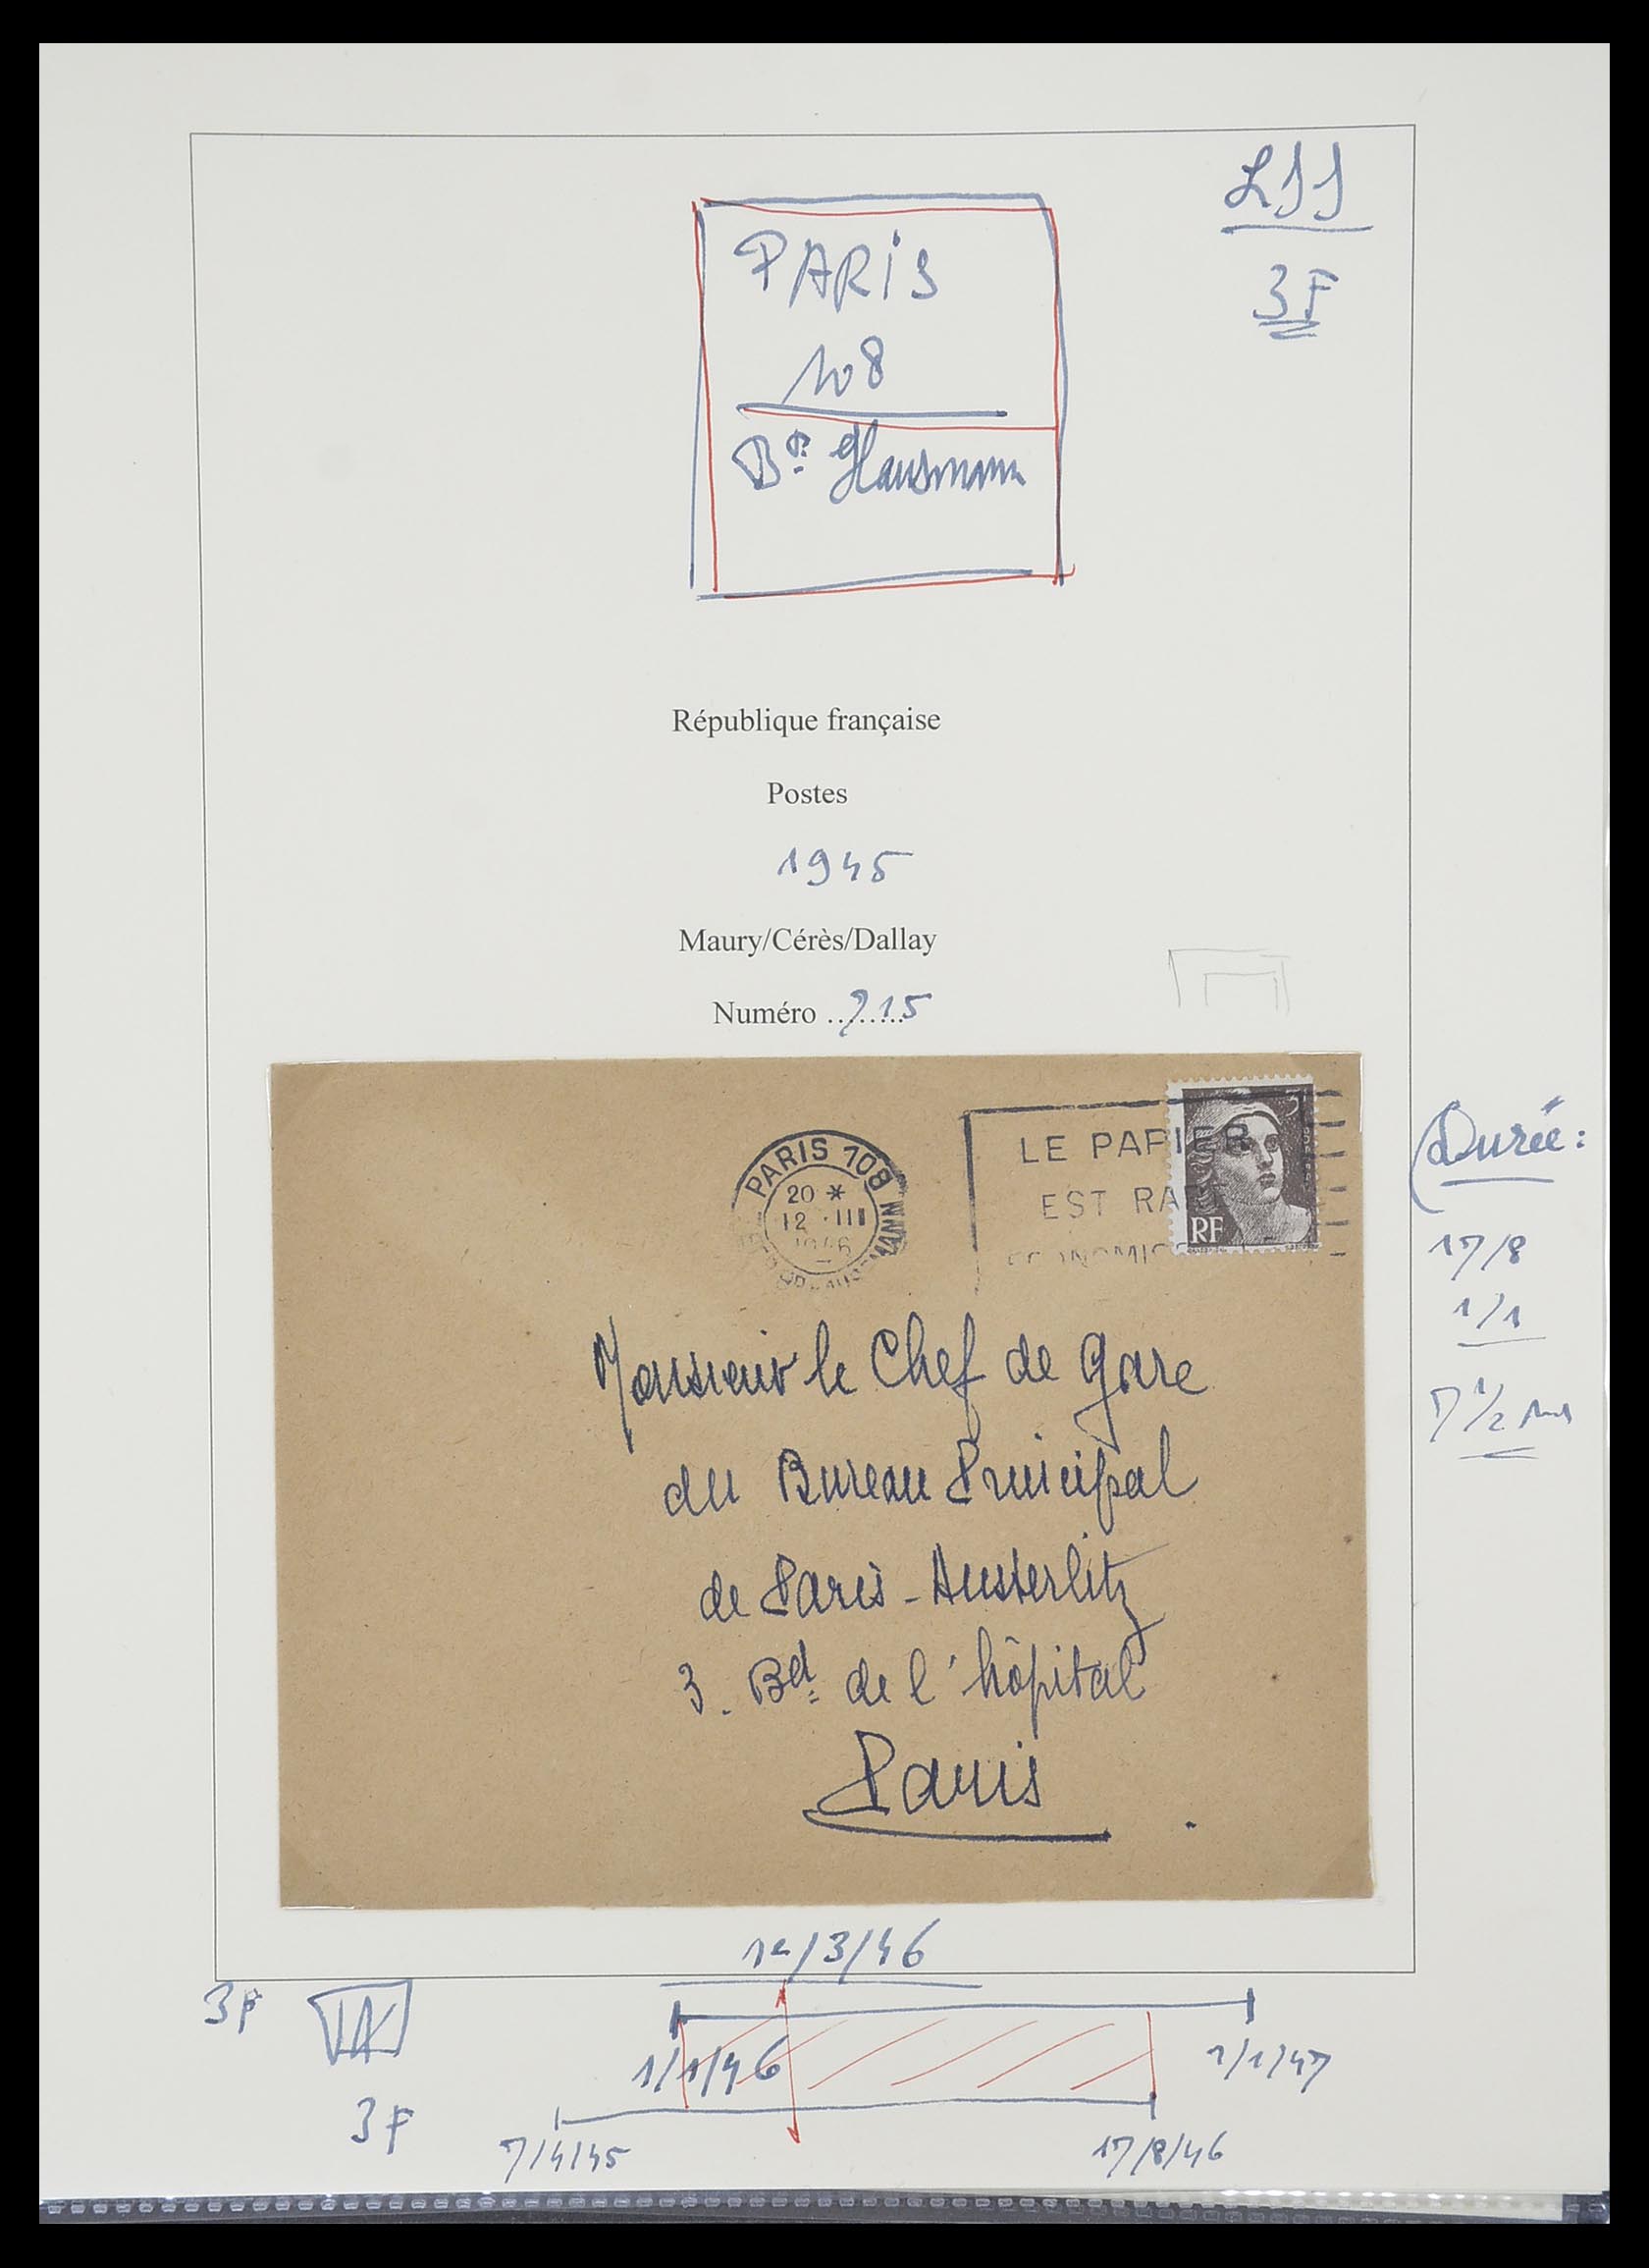 LSS
3F
PARIS
108
Bd Hausmann
République française
Postes
1945
Maury/Cérès/Dallay
Numéro ........715
PARIS 108
20 *
12 · III
1946
LE PAPIER
EST RA
ECONOMIS
3F
RF
Monsieur le Chef de Gare
du Bureau Principal
de Paris - Austerlitz
3. Bd de l'hôpital
Paris
Durée :
17/8
1/1
7 1/2
12/3/46
3F
1/1/46
1/1/47
3F
7/4/45
17/8/46